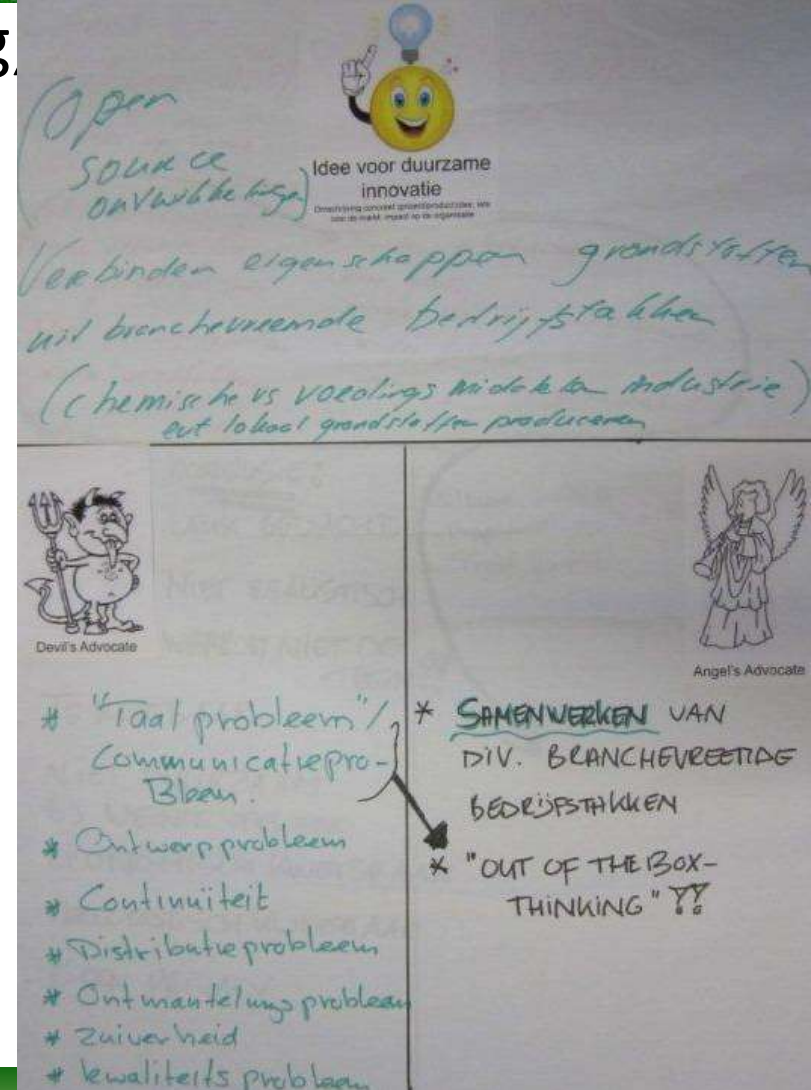 g,
(Open
source
ontwikkelingen)
Idee voor duurzame
innovatie
Verbinden eigenschappen grondstoffen
uit branchevreemde bedrijfstakken
(chemische vs voedingsmiddelen industrie)
evt lokaal grondstoffen produceren
Devil's Advocate
* "Taal probleem"/
Communicatiepro-
Bleem.
* Ontwerpprobleem
* Continuïteit
* Distributieprobleem
* Ontmantelingsprobleem
* Zuiverheid
* kwaliteitsprobleem
Angel's Advocate
* SAMENWERKEN VAN
DIV. BRANCHEVREEMDE
BEDRIJFSTAKKEN
* "OUT OF THE BOX-
THINKING" !!